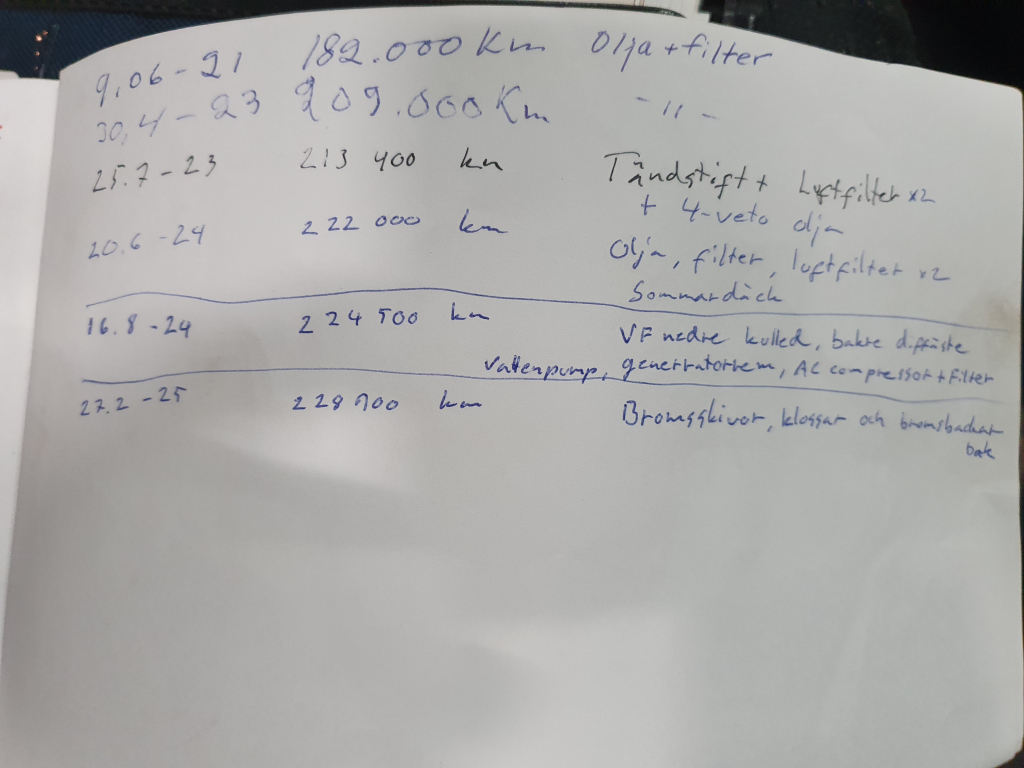 9,06-21 182.000 Km Olja + filter
30,4-23 209.000 Km -11-
25.7-23 213 400 km Tändstift + Luftfilter x2
+ 4-veto olja
20.6-24 222 000 km Olja, filter, luftfilter x2
Sommardäck
16.8-24 224 500 km VF nedre kulled, bakre diffäste
Vattenpump, generratorrem, AC compressor + filter
27.2-25 228 700 km Bromsskivor, klossar och bromsbackar
bak